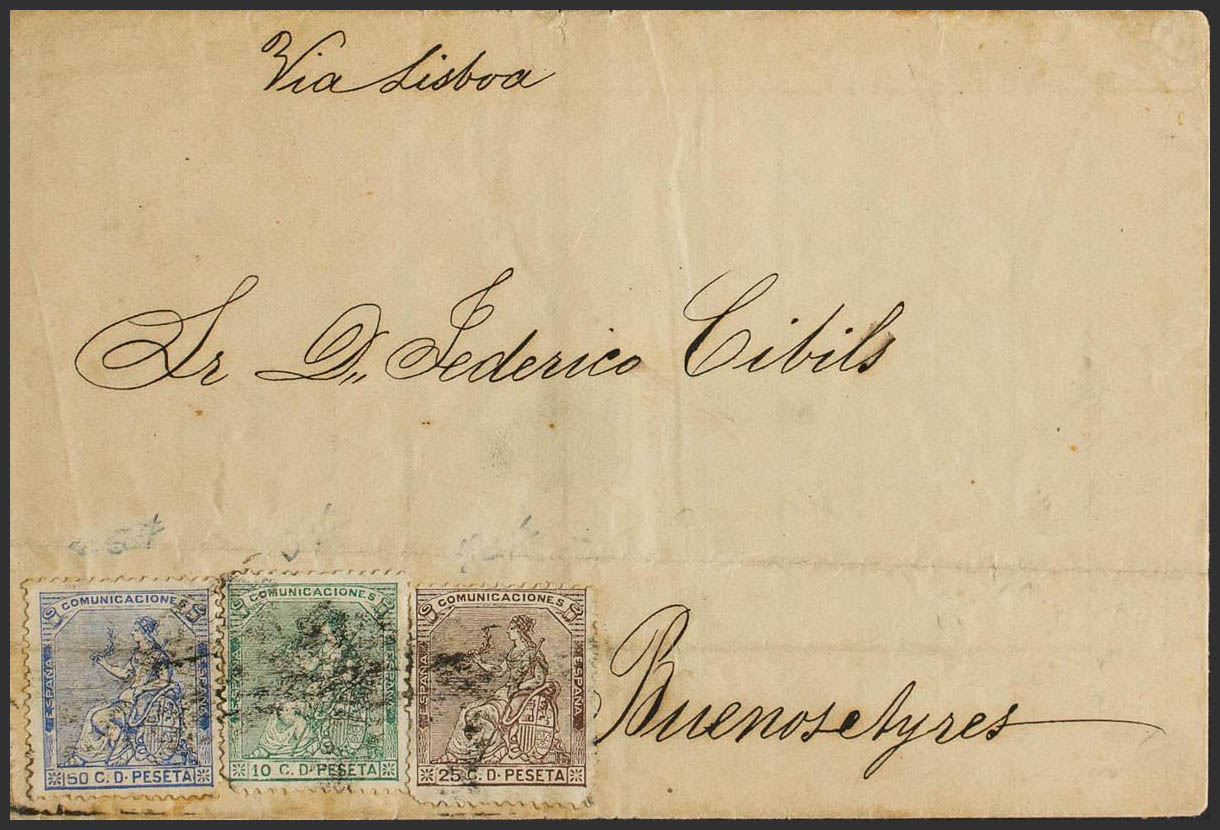 Via Lisboa
Sr D,, Federico Cibils
Buenos Ayres
COMUNICACIONES
ESPAÑA
ESPAÑA
50 C. D. PESETA
COMUNICACIONES
ESPAÑA
ESPAÑA
10 C. D. PESETA
COMUNICACIONES
ESPAÑA
ESPAÑA
25 C. D. PESETA